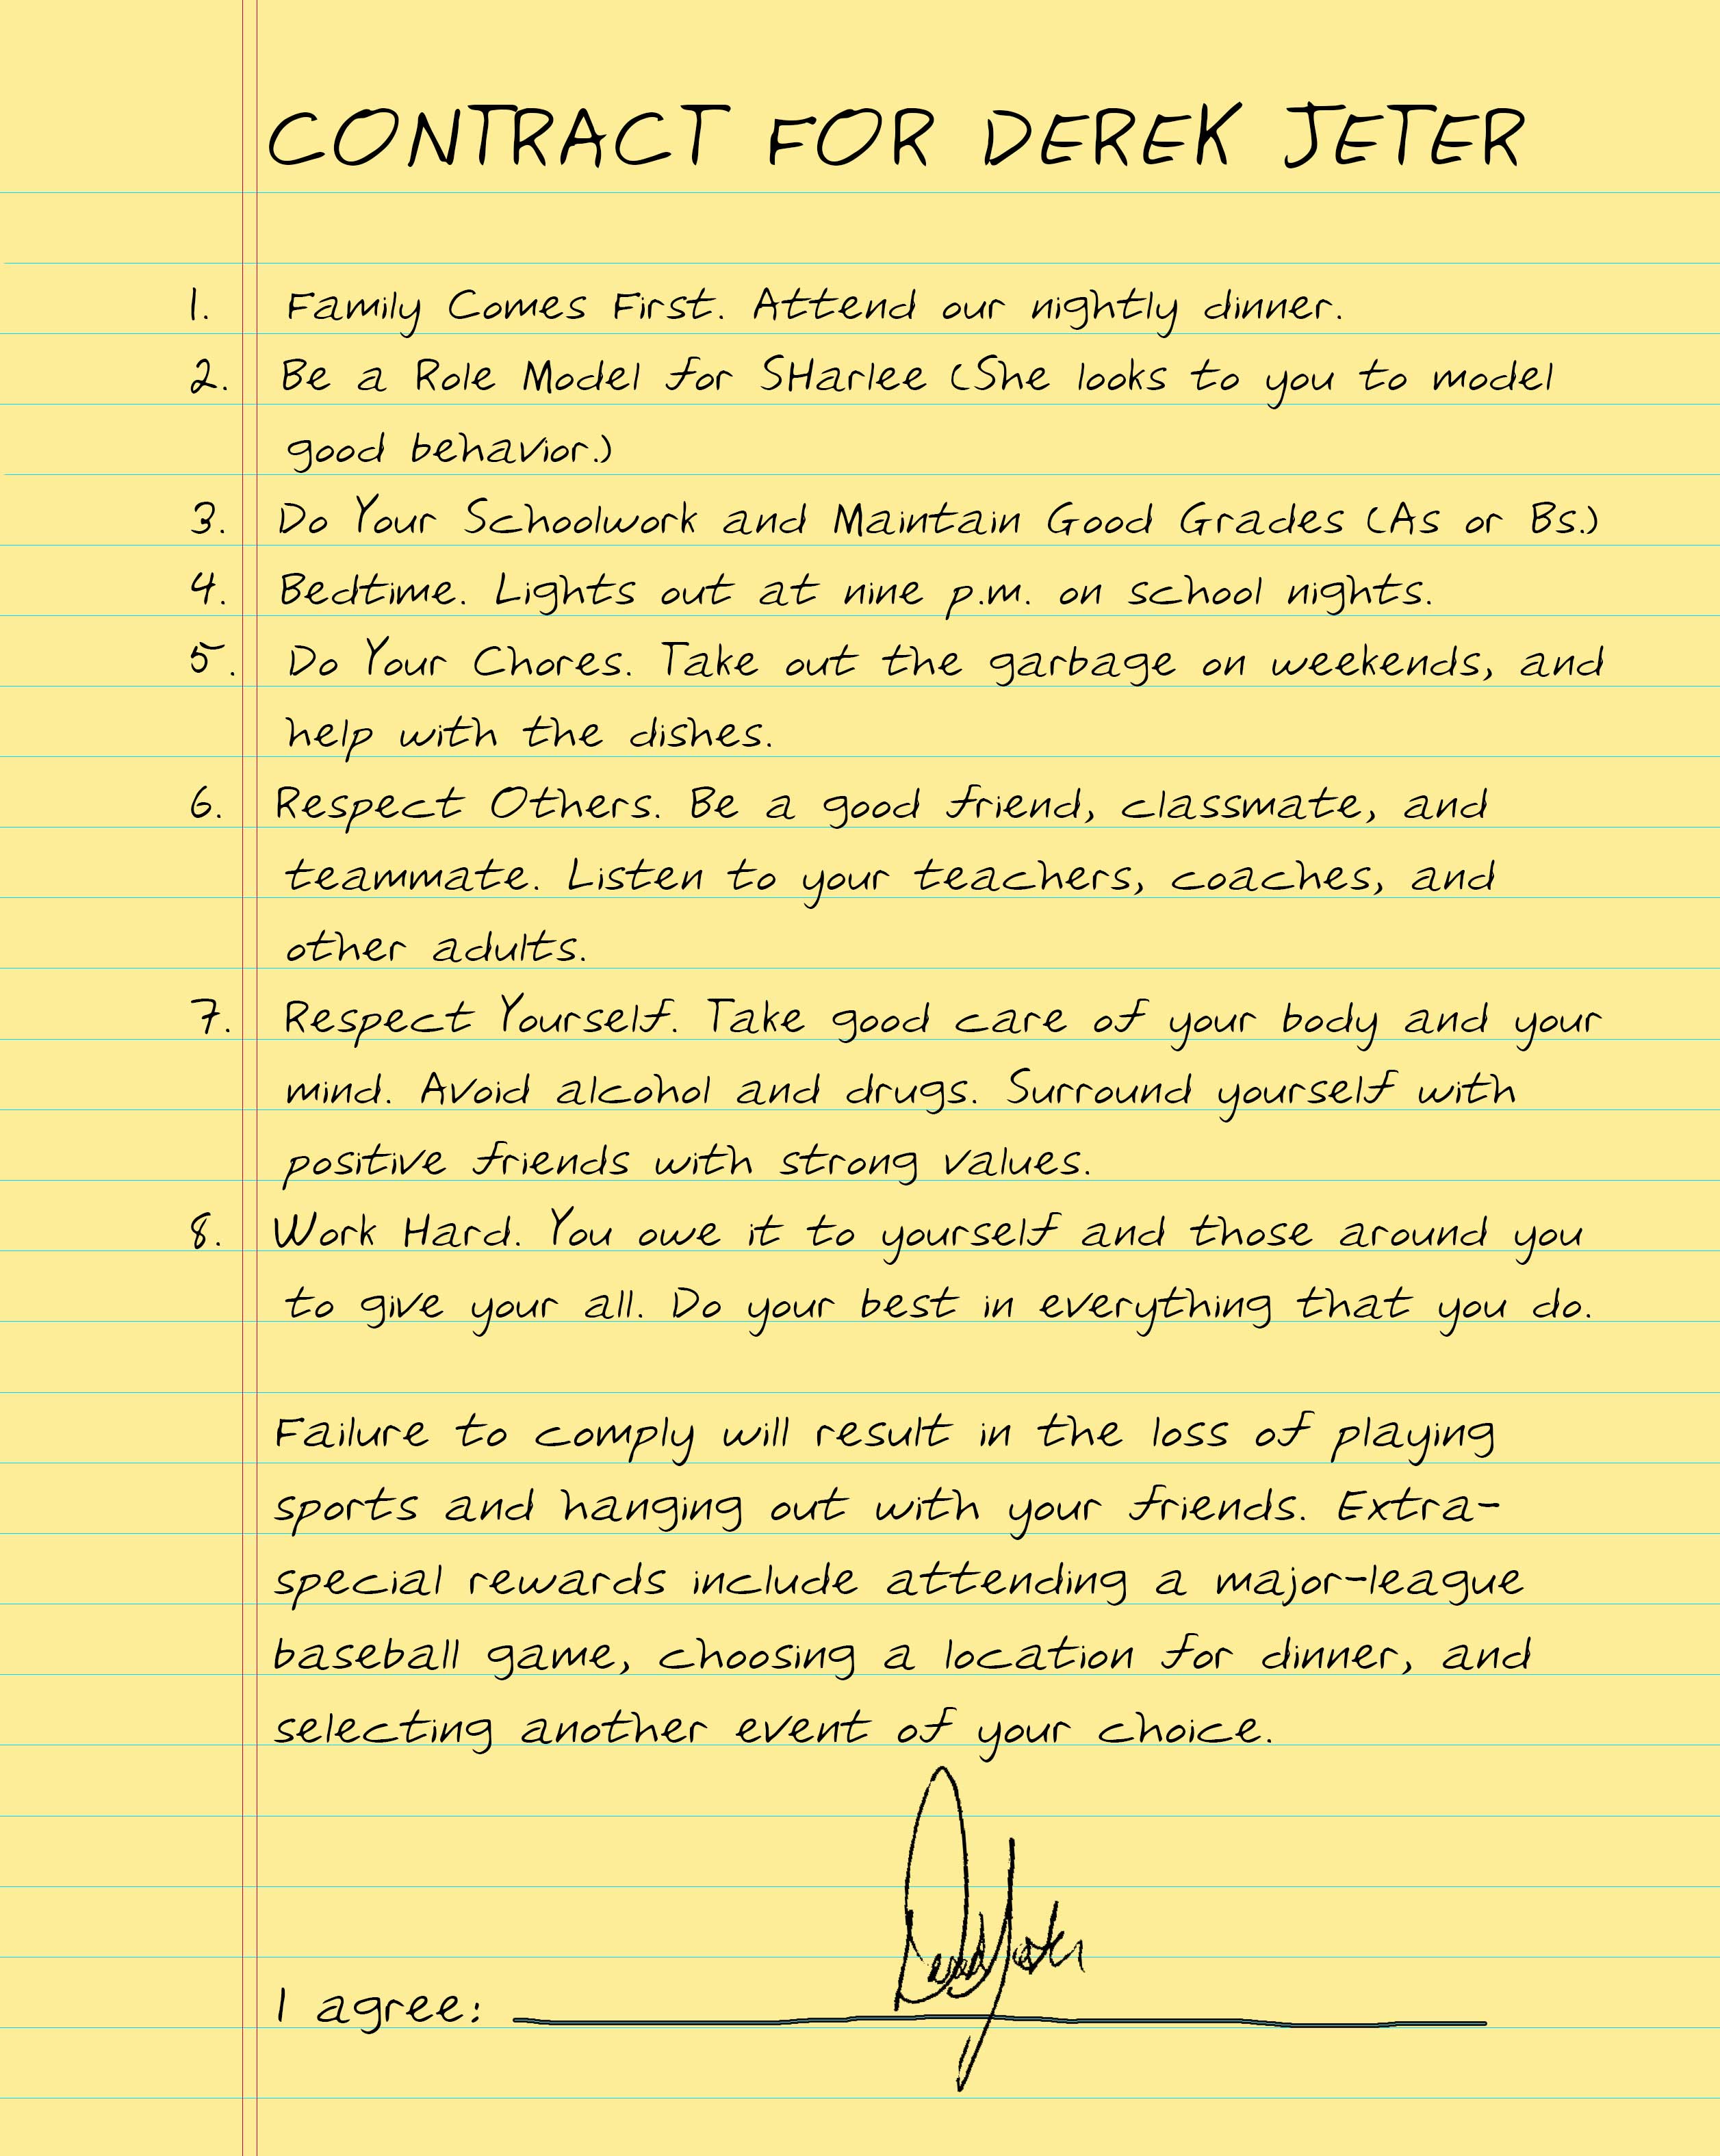 CONTRACT FOR DEREK JETER
1. Family Comes First. Attend our nightly dinner.
2. Be a Role Model for SHarlee (She looks to you to model
good behavior.)
3. Do Your Schoolwork and Maintain Good Grades (As or Bs.)
4. Bedtime. Lights out at nine p.m. on school nights.
5. Do Your Chores. Take out the garbage on weekends, and
help with the dishes.
6. Respect Others. Be a good friend, classmate, and
teammate. Listen to your teachers, coaches, and
other adults.
7. Respect Yourself. Take good care of your body and your
mind. Avoid alcohol and drugs. Surround yourself with
positive friends with strong values.
8. Work Hard. You owe it to yourself and those around you
to give your all. Do your best in everything that you do.
Failure to comply will result in the loss of playing
sports and hanging out with your friends. Extra-
special rewards include attending a major-league
baseball game, choosing a location for dinner, and
selecting another event of your choice.
Derek Jeter
I agree: